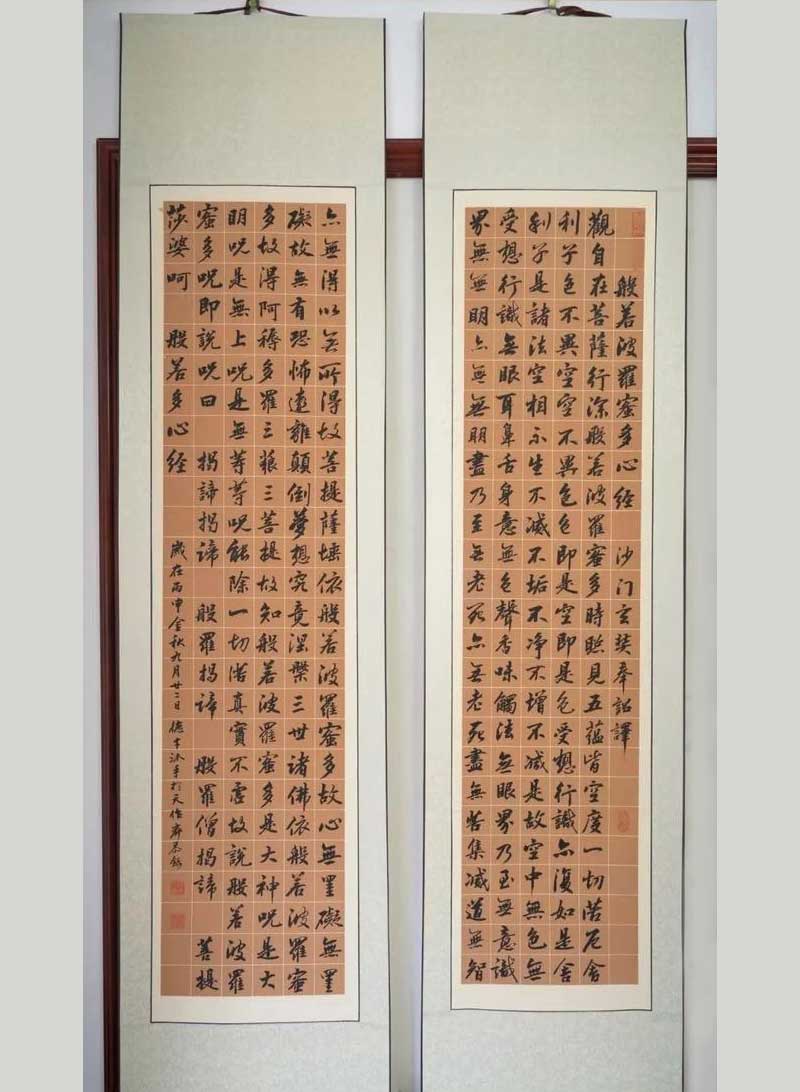 般若波羅蜜多心經 沙门玄奘奉詔譯
觀自在菩薩行深般若波羅蜜多時照見五蕴皆空度一切苦厄舍
利子色不異空空不異色色即是空即是色受想行識亦復如是舍
利子是諸法空相不生不滅不垢不净不增不减是故空中無色無
受想行識無眼耳鼻舌身意無色聲香味觸法無眼界乃至無意識
界無無明亦無無明盡乃至無老死亦無老死盡無苦集滅道無智
亦無得以無所得故菩提薩埵依般若波羅蜜多故心無罣礙無罣
礙故無有恐怖遠離顛倒夢想究竟涅槃三世諸佛依般若波羅蜜
多故得阿耨多羅三藐三菩提故知般若波羅蜜多是大神呪是大
明呪是無上呪是無等等呪能除一切苦真實不虛故說般若波羅
蜜多呪即說呪曰 揭諦揭諦 般羅揭諦 般羅僧揭諦 菩提
莎婆呵 般若多心经
歲在丙申金秋九月廿二日 沐手於天 齋恭錄